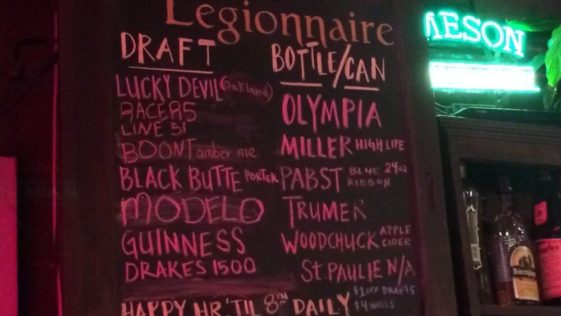 Legionnaire
DRAFT
LUCKY DEVIL (oakland)
RACER 5
LINE 51
BOONT amber ALE
BLACK BUTTE PORTER
MODELO
GUINNESS
DRAKES 1500
BOTTLE/CAN
OLYMPIA
MILLER HIGH LIFE
PABST BLUE RIBBON 24oz
TRUMER
WOODCHUCK APPLE CIDER
ST. PAULIE N/A
HAPPY HR 'TIL 8PM DAILY
$1 OFF DRAFTS
$4 WELLS
MESON